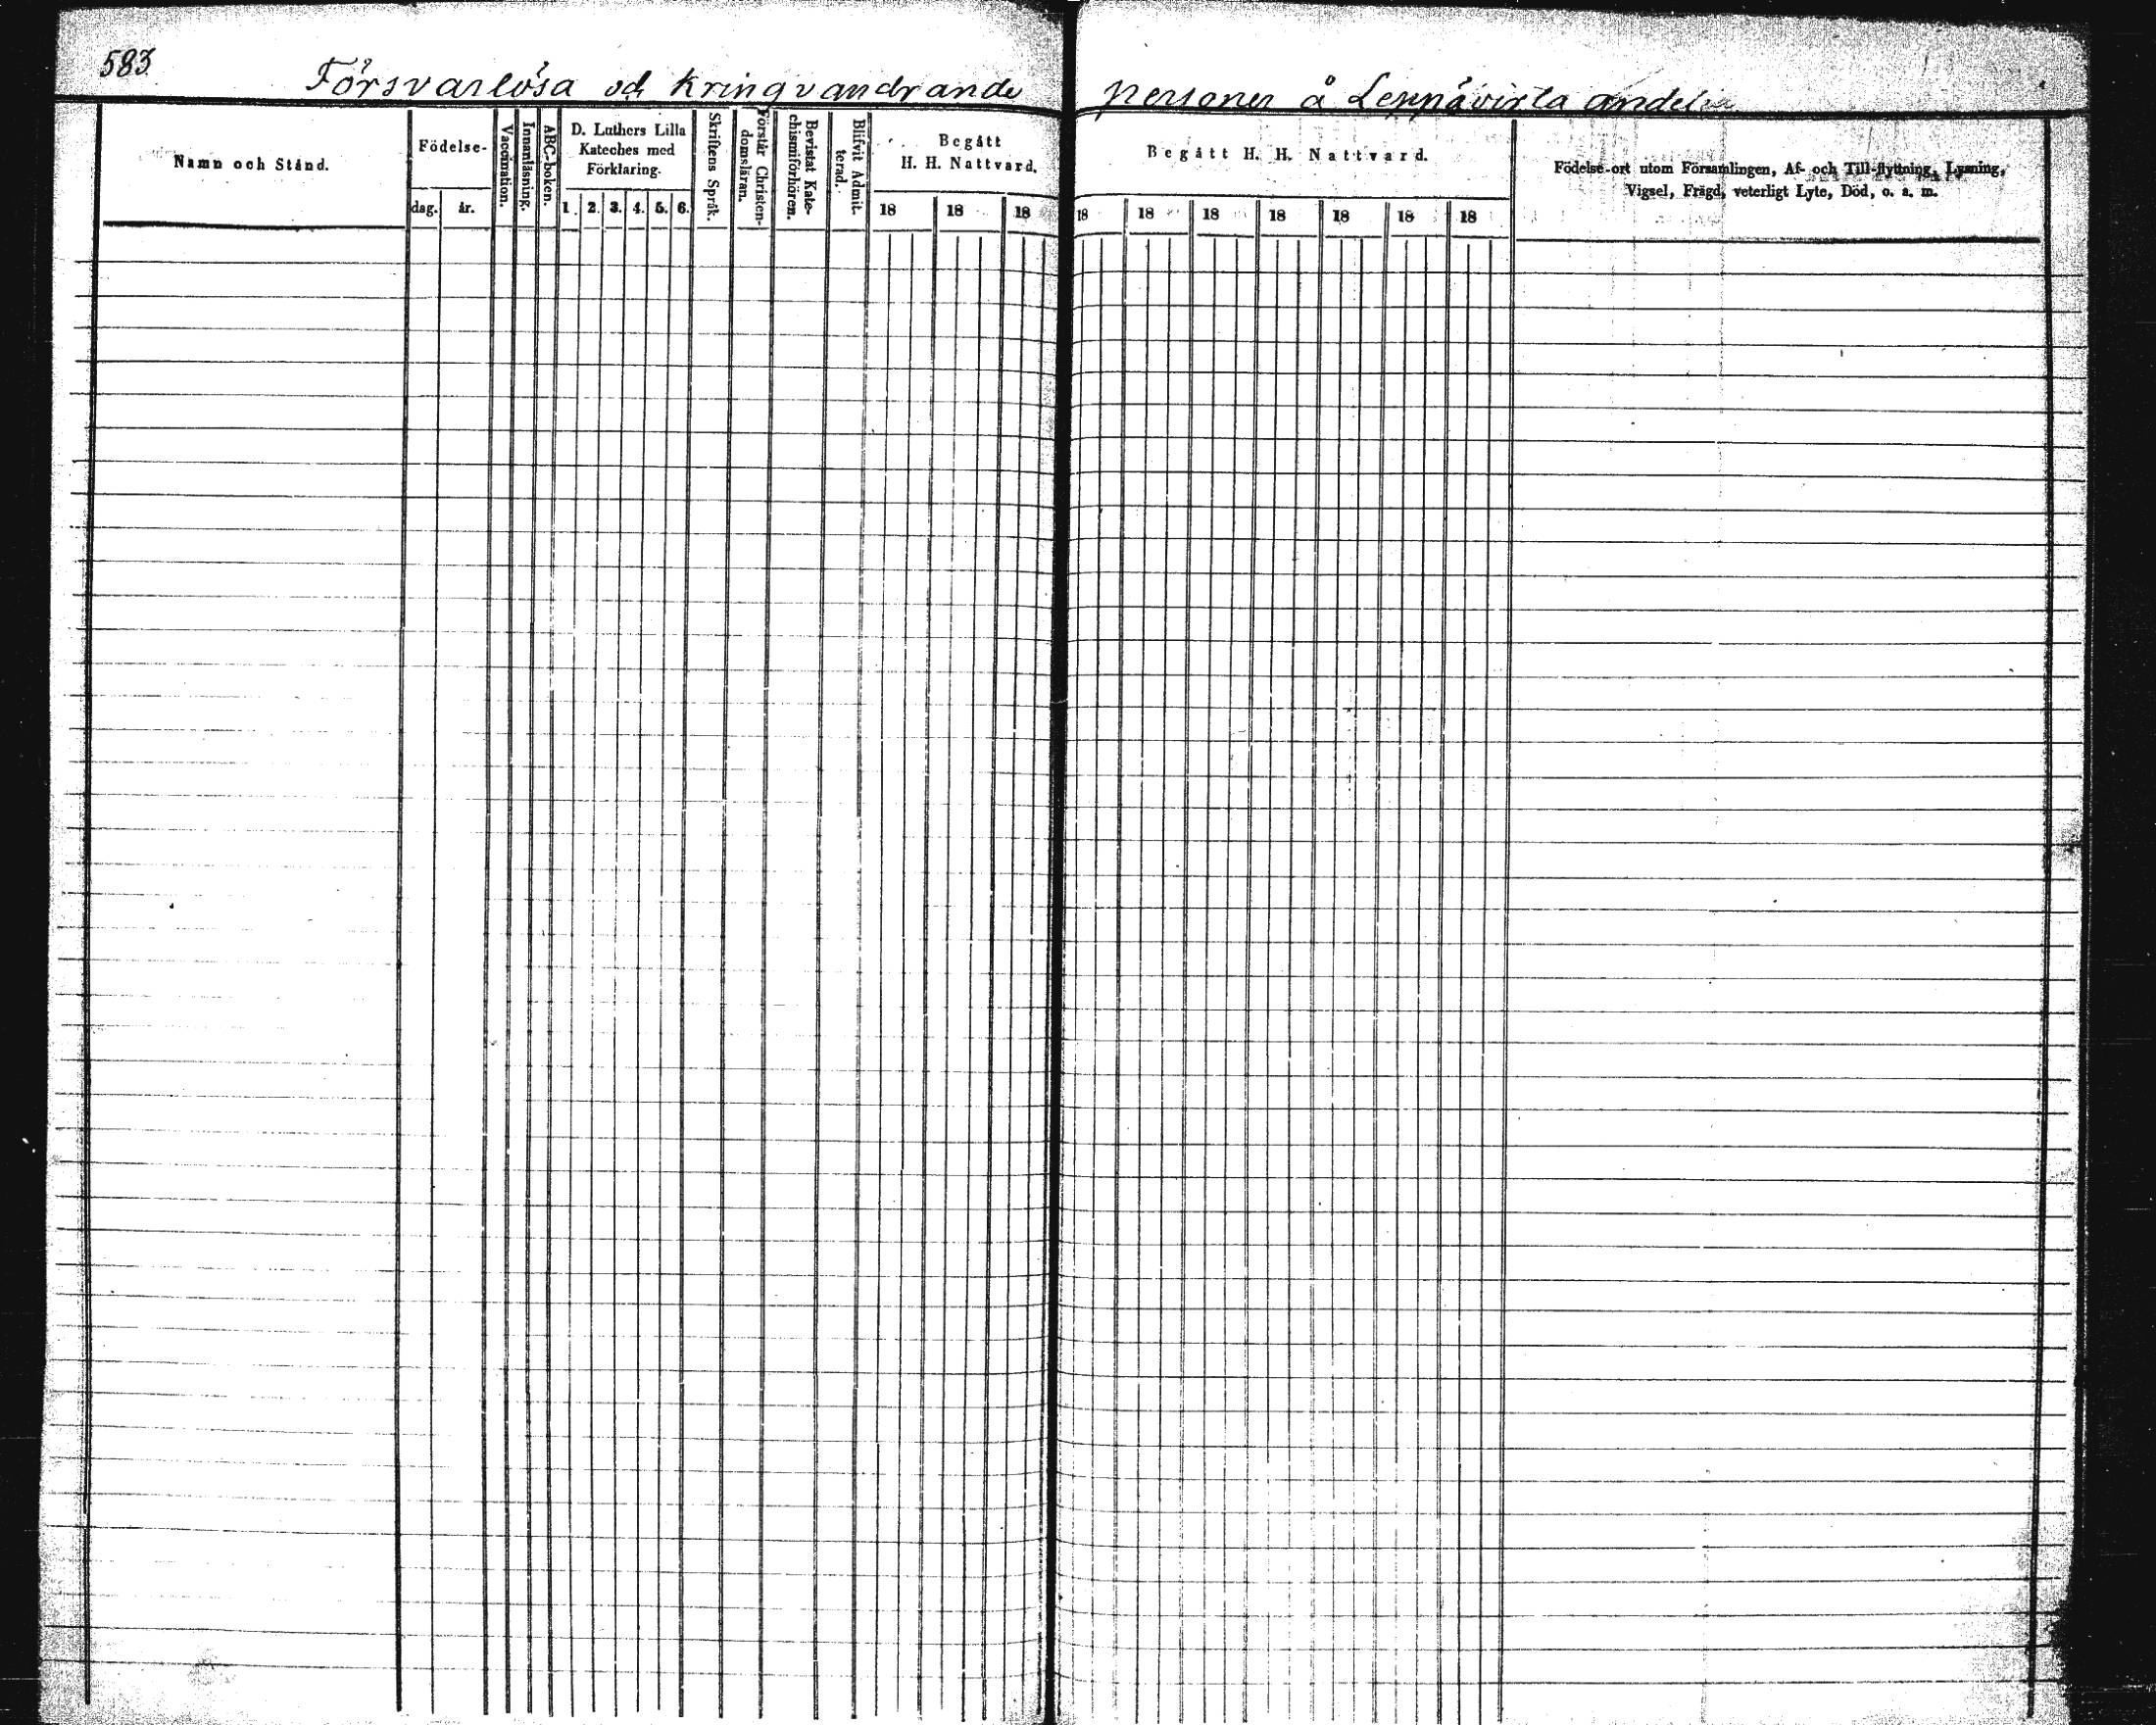 583
Försvarlösa och kringvandrande personer å Leppävirta andelin
Namn och Stånd.
Födelse-
dag.
år.
Vaccination.
Innanläsning.
ABC-boken.
D. Luthers Lilla
Kateches med
Förklaring.
1. 2. 3. 4. 5. 6.
Skriftens Språk.
Förstår Christen-
domsläran.
Bevistat Kate-
chismiförhören.
Blifvit Admit-
terad.
Begått
H. H. Nattvard.
18 18 18
Begått H. H. Nattvard.
18 18 18 18 18 18 18
Födelse-ort utom Församlingen, Af- och Till-flyttning, Lysning,
Vigsel, Frägd, veterligt Lyte, Död, o. a. m.